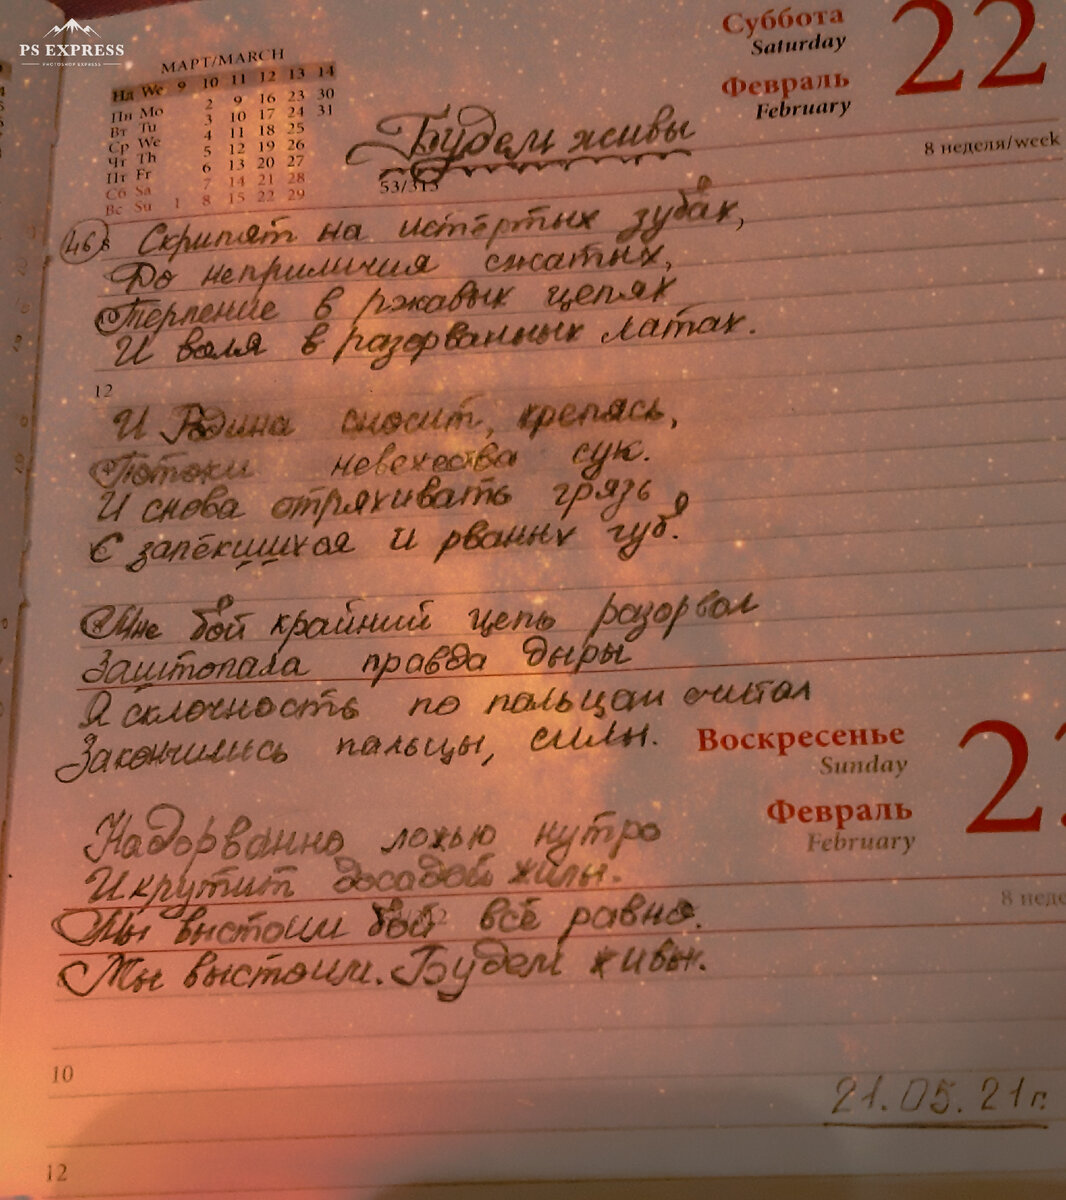 PS EXPRESS
PHOTOSHOP EXPRESS
Суббота
Saturday
22
Февраль
February
8 неделя/week
МАРТ/MARCH
Нд We 9 10 11 12 13 14
Пн Mo 2 9 16 23 30
Вт Tu 3 10 17 24 31
Ср We 4 11 18 25
Чт Th 5 12 19 26
Пт Fr 6 13 20 27
Сб Sa 7 14 21 28
Вс Su 1 8 15 22 29
Будем живы
53/313
46 8 Скрипят на истёртых зубах,
До неприличия сжатых,
Терпение в ржавых цепях
И воля в разорванных латах.
12
И Родина сносит, крепясь,
Потоки невежества сук.
И снова отряхивать грязь
С запёкшихся и рваных губ.
Мне бой крайний цепь разорвал
Заштопала правда дыры
Я склочность по пальцам считал
Закончились пальцы, силы.
Воскресенье
Sunday
Февраль
February
8 неде
Надорванно ложью нутро
И крутит досадой жилы.
Мы выстоим бой всё равно.
Мы выстоим. Будем живы.
10
21.05.21г.
12